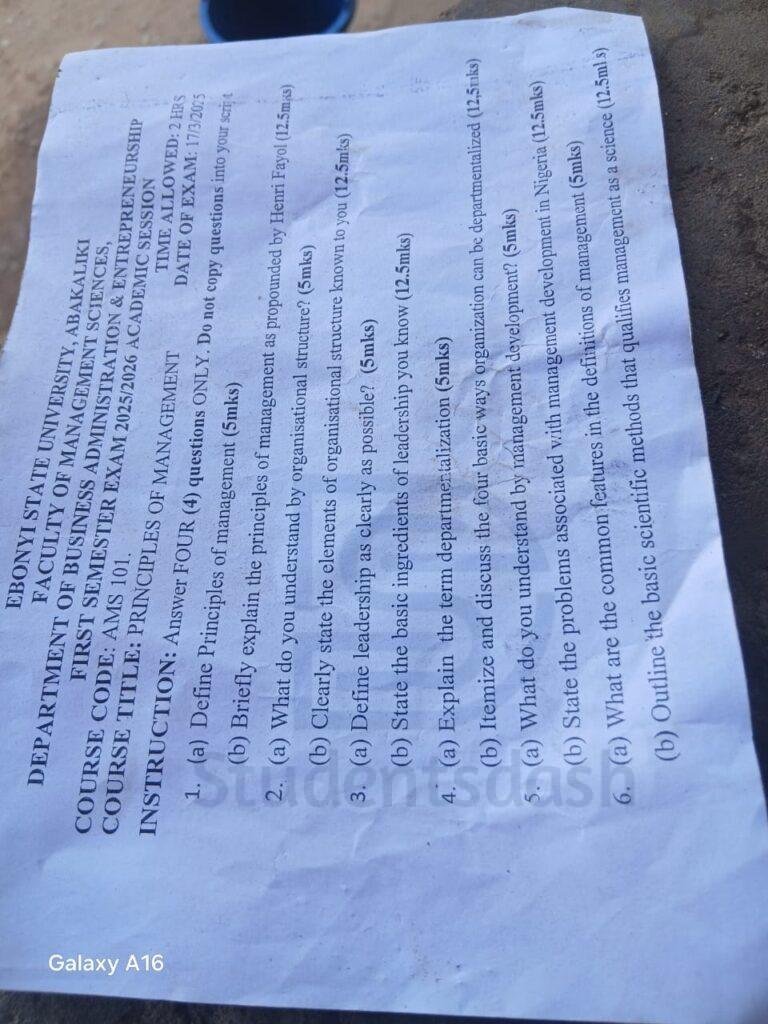 EBONYI STATE UNIVERSITY, ABAKALIKI
FACULTY OF MANAGEMENT SCIENCES,
DEPARTMENT OF BUSINESS ADMINISTRATION & ENTREPRENEURSHIP
FIRST SEMESTER EXAM 2025/2026 ACADEMIC SESSION
COURSE CODE: AMS 101. TIME ALLOWED: 2 HRS
COURSE TITLE: PRINCIPLES OF MANAGEMENT DATE OF EXAM: 17/3/2025
INSTRUCTION: Answer FOUR (4) questions ONLY. Do not copy questions into your script
1. (a) Define Principles of management (5mks)
(b) Briefly explain the principles of management as propounded by Henri Fayol (12.5mks)
2. (a) What do you understand by organisational structure? (5mks)
(b) Clearly state the elements of organisational structure known to you (12.5mks)
3. (a) Define leadership as clearly as possible? (5mks)
(b) State the basic ingredients of leadership you know (12.5mks)
4. (a) Explain the term departmentalization (5mks)
(b) Itemize and discuss the four basic ways organization can be departmentalized (12,5mks)
5. (a) What do you understand by management development? (5mks)
(b) State the problems associated with management development in Nigeria (12.5mks)
6. (a) What are the common features in the definitions of management (5mks)
(b) Outline the basic scientific methods that qualifies management as a science (12.5mks)
Studentsdash
Galaxy A16